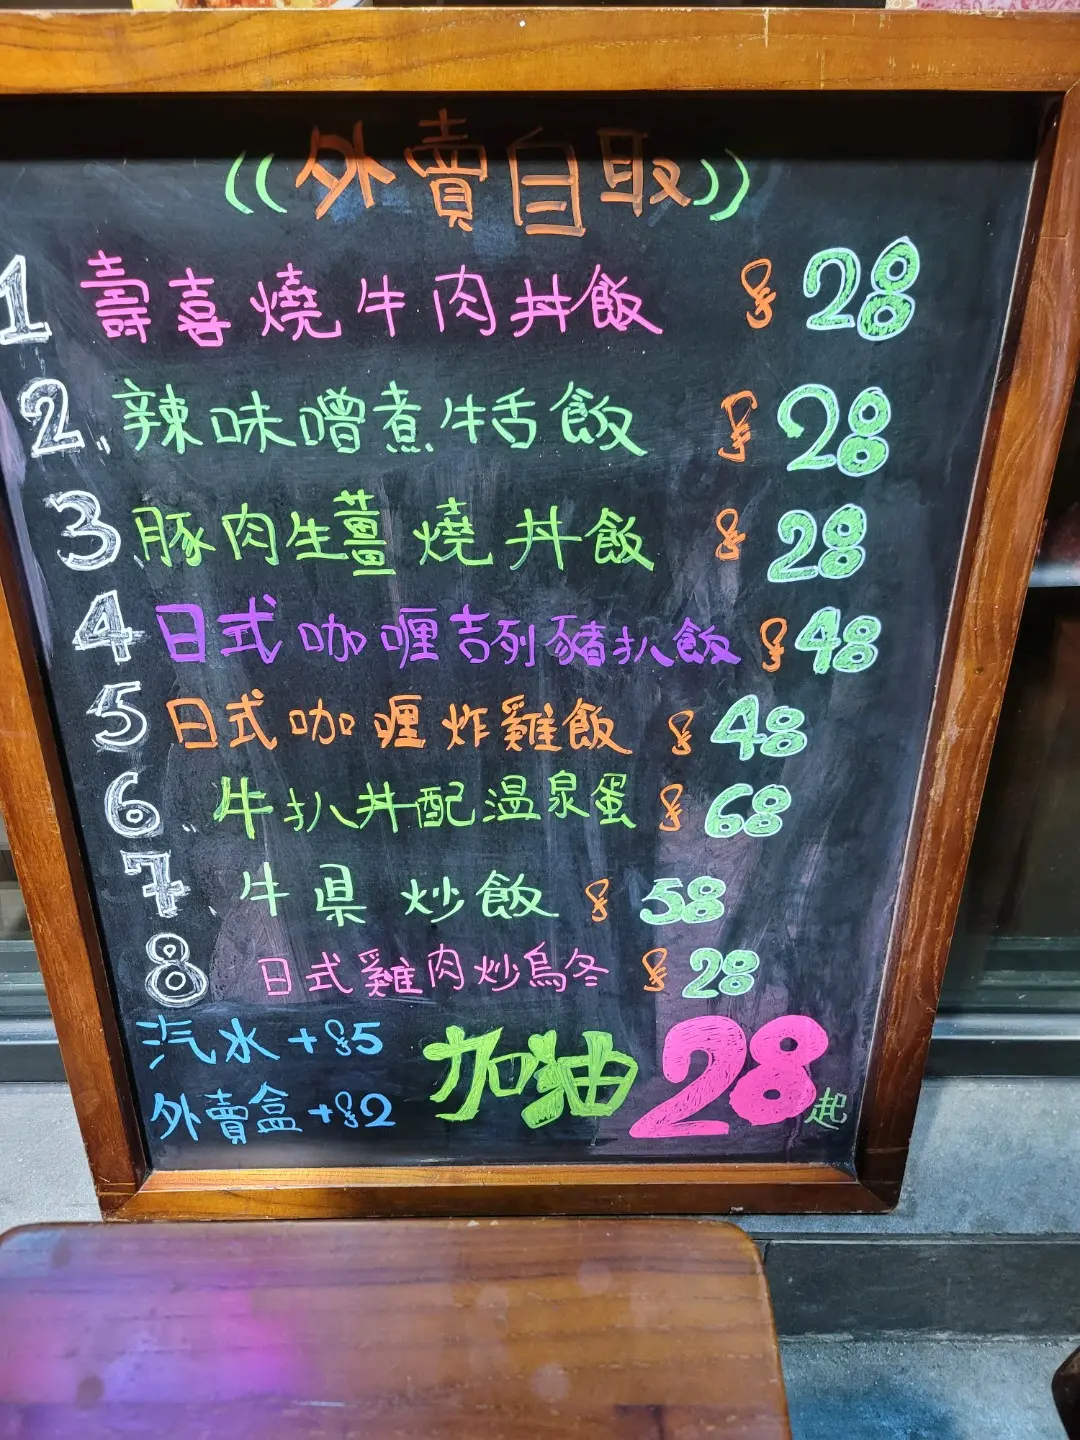 ((外賣自取))
1 壽喜燒牛肉丼飯 $28
2. 辣味噌煮牛舌飯 $28
3 豚肉生薑燒丼飯 $28
4 日式咖喱吉列豬扒飯 $48
5 日式咖喱炸雞飯 $48
6.. 牛扒丼配温泉蛋 $68
7. 牛県炒飯 $58
8 日式雞肉炒烏冬 $28
汽水 +$5
外賣盒 +$2
加油 28起